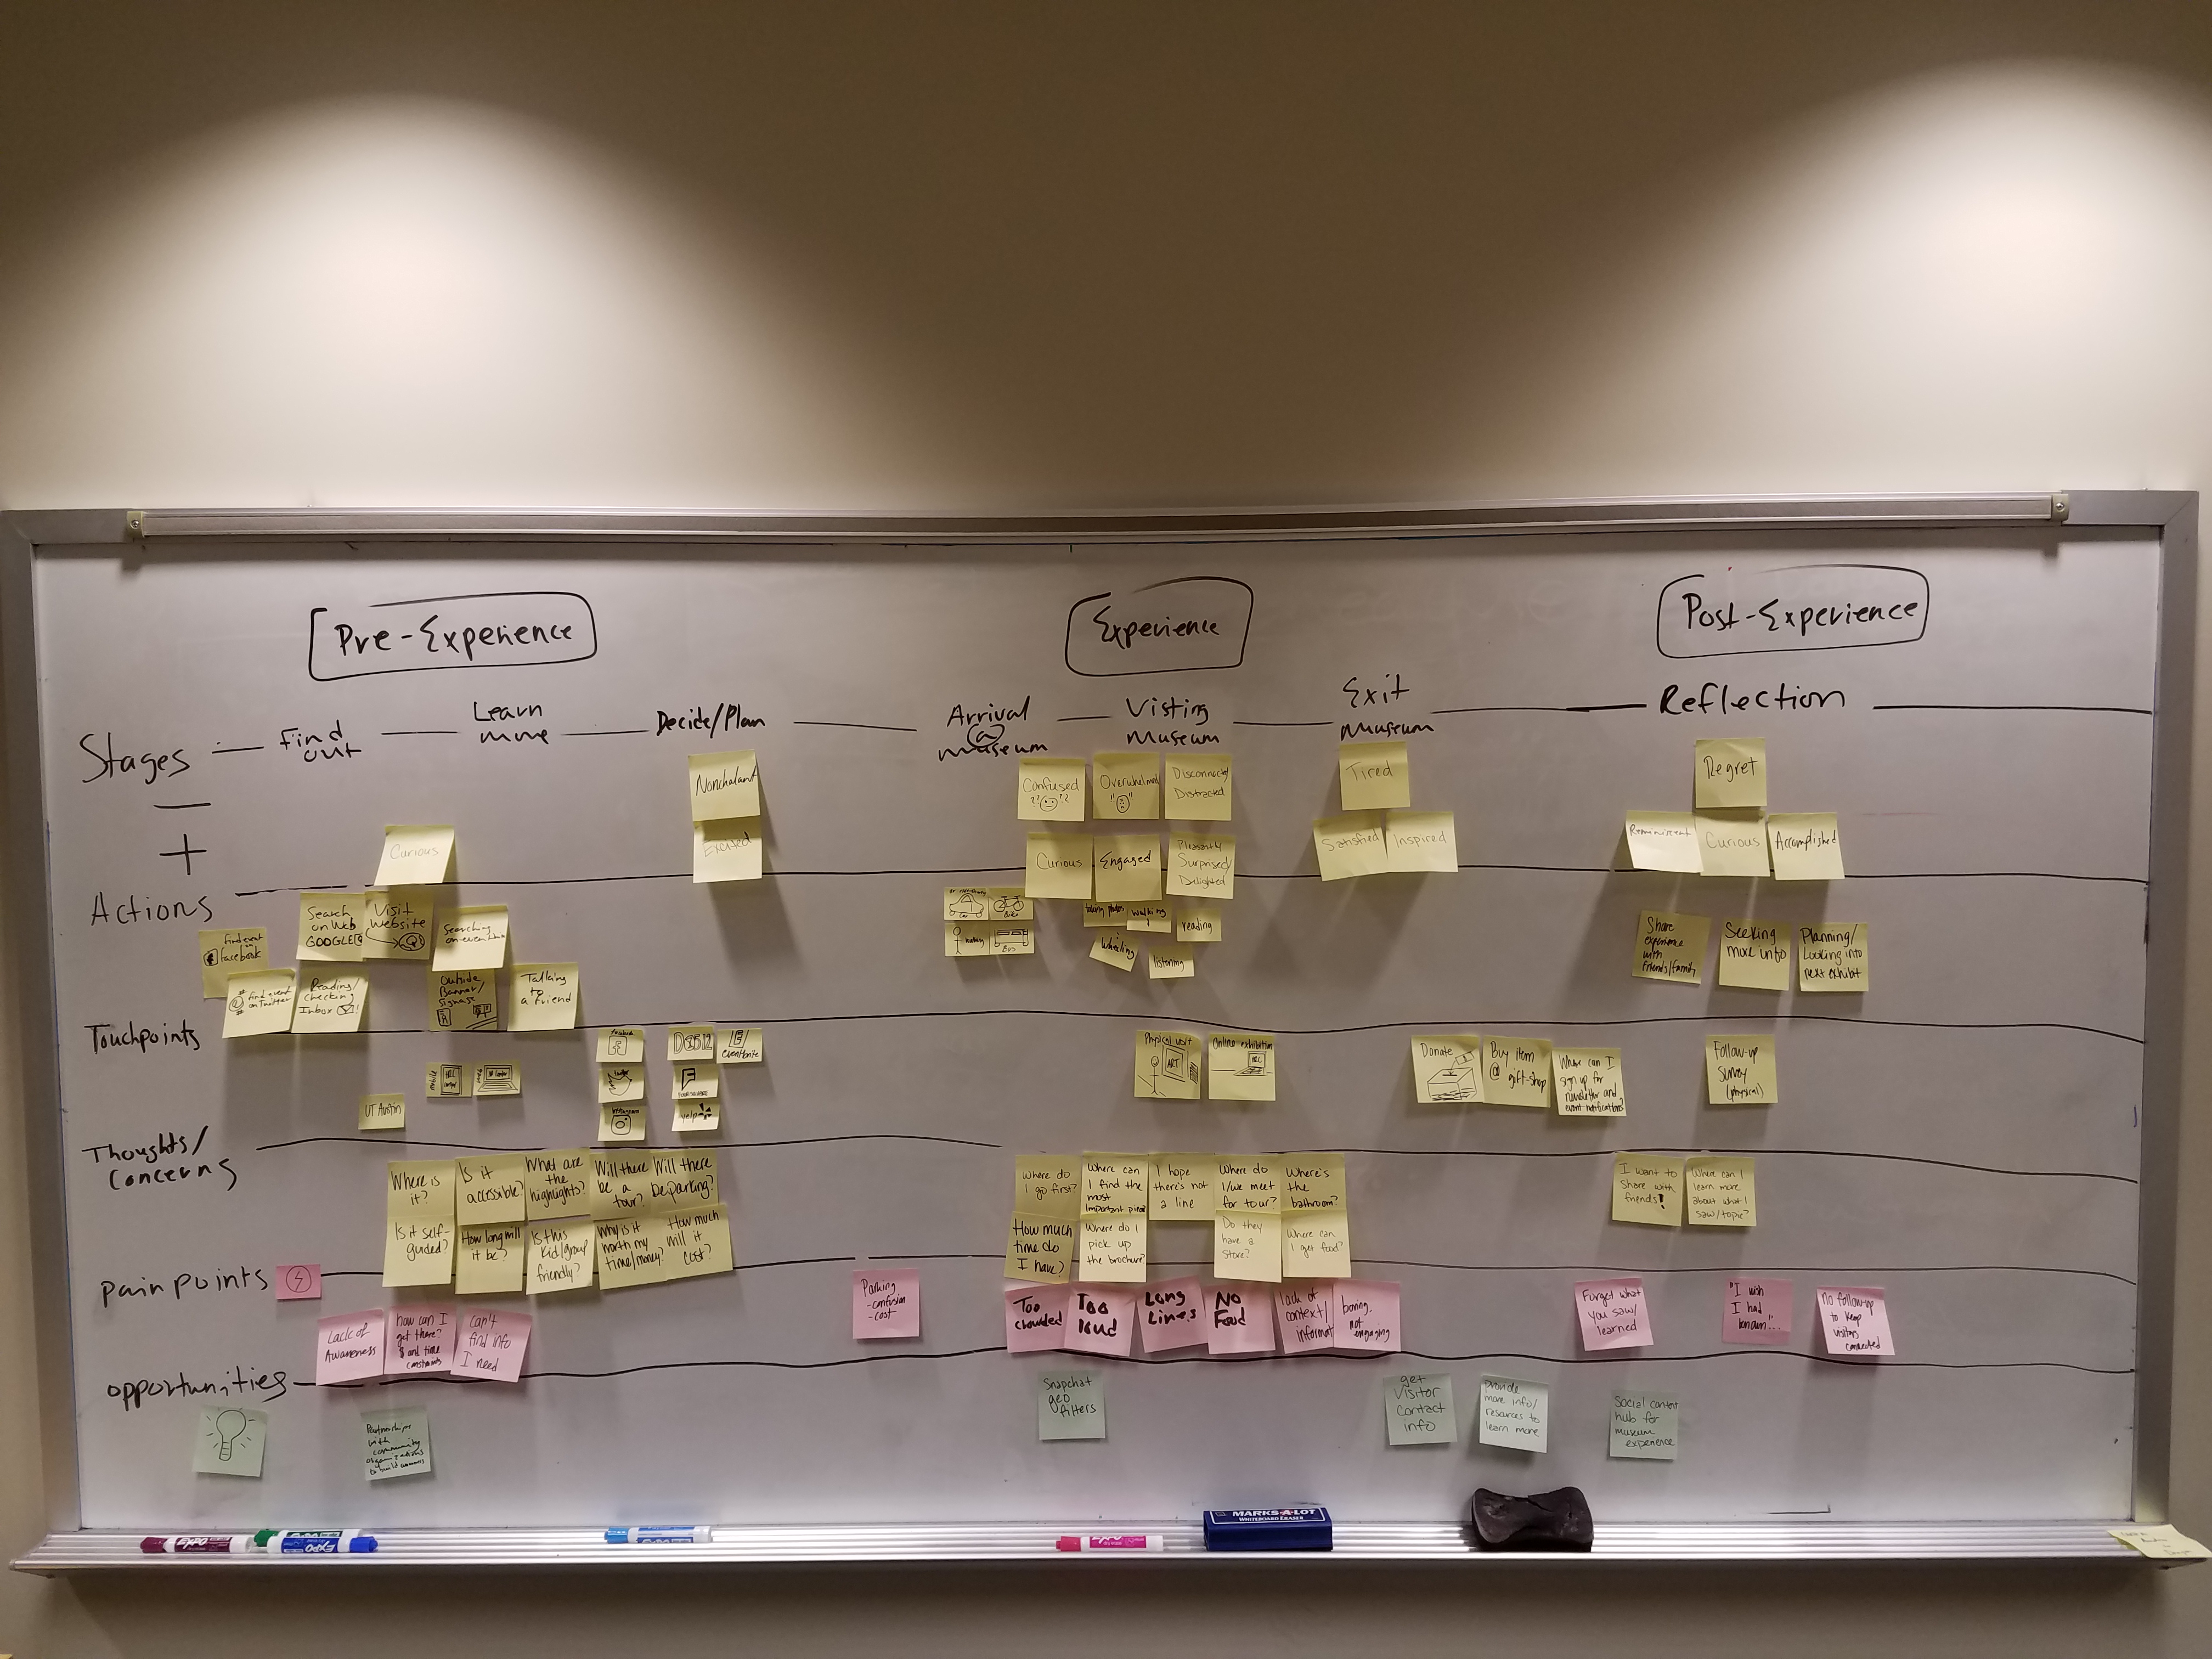 Pre-Experience
Experience
Post-Experience
Stages
Find
out
Learn
more
Decide/Plan
Arrival
@
museum
Visting
Museum
Exit
museum
Reflection
Nonchalant
Confused
??
??
Overwhelmed
Disconnected/
Distracted
Tired
Regret
Curious
Excited
Curious
Engaged
Pleasantly
Surprised/
Delighted
Satisfied
Inspired
Reminiscent
Curious
Accomplished
Actions
find event
on
facebook
Search
on Web
GOOGLE
Visit
Website
Searching
find event
on Twitter
Reading/
checking
Inbox
Outside
Banner/
Signage
Talking
to
a friend
car
Bike
walking
Bus
taking photos
walking
reading
wheeling
listening
Share
experience
with
friends/family
Seeking
more info
Planning/
Looking into
next exhibit
Touchpoints
UT Austin
mobile
facebook
twitter
Instagram
Do512
eventbrite
FOURSQUARE
yelp
Physical visit
ART
Online exhibition
Donate
Buy item
@
gift-shop
Where can I
sign up for
newsletter and
event notifications?
Follow-up
survey
(physical)
Thoughts/
Concerns
Where is
it?
Is it
accessible?
What are
the
highlights?
Will there
be a
tour?
Will there
be parking?
Is it self-
guided?
How long will
it be?
Is this
kid/group
friendly?
Why is it
worth my
time/money?
How much
will it
cost?
Where do
I go first?
Where can
I find the
most
important piece
I hope
there's not
a line
Where do
I/we meet
for tour?
Where's
the
bathroom?
How much
time do
I have?
Where do I
pick up
the brochure?
Do they
have a
store?
Where can
I get food?
I want to
share with
friends!
Where can I
learn more
about what I
saw/topic?
Painpoints
Lack of
Awareness
how can I
get there?
$ and time
constraints
can't
find info
I need
Parking
- confusion
- cost
Too
crowded
Too
loud
Long
Lines
No
Food
lack of
context/
informat
boring,
not
engaging
Forget what
you saw/
learned
"I wish
I had
known"...
no follow-up
to keep
visitors
connected
opportunities
Partnerships
with
community
organizations
to build awareness
Snapchat
geo
filters
get
visitor
contact
info
provide
more info/
resources to
learn more
Social content
hub for
museum
experience
EXPO
EXPO
MARKS-A-LOT
WHITEBOARD ERASER